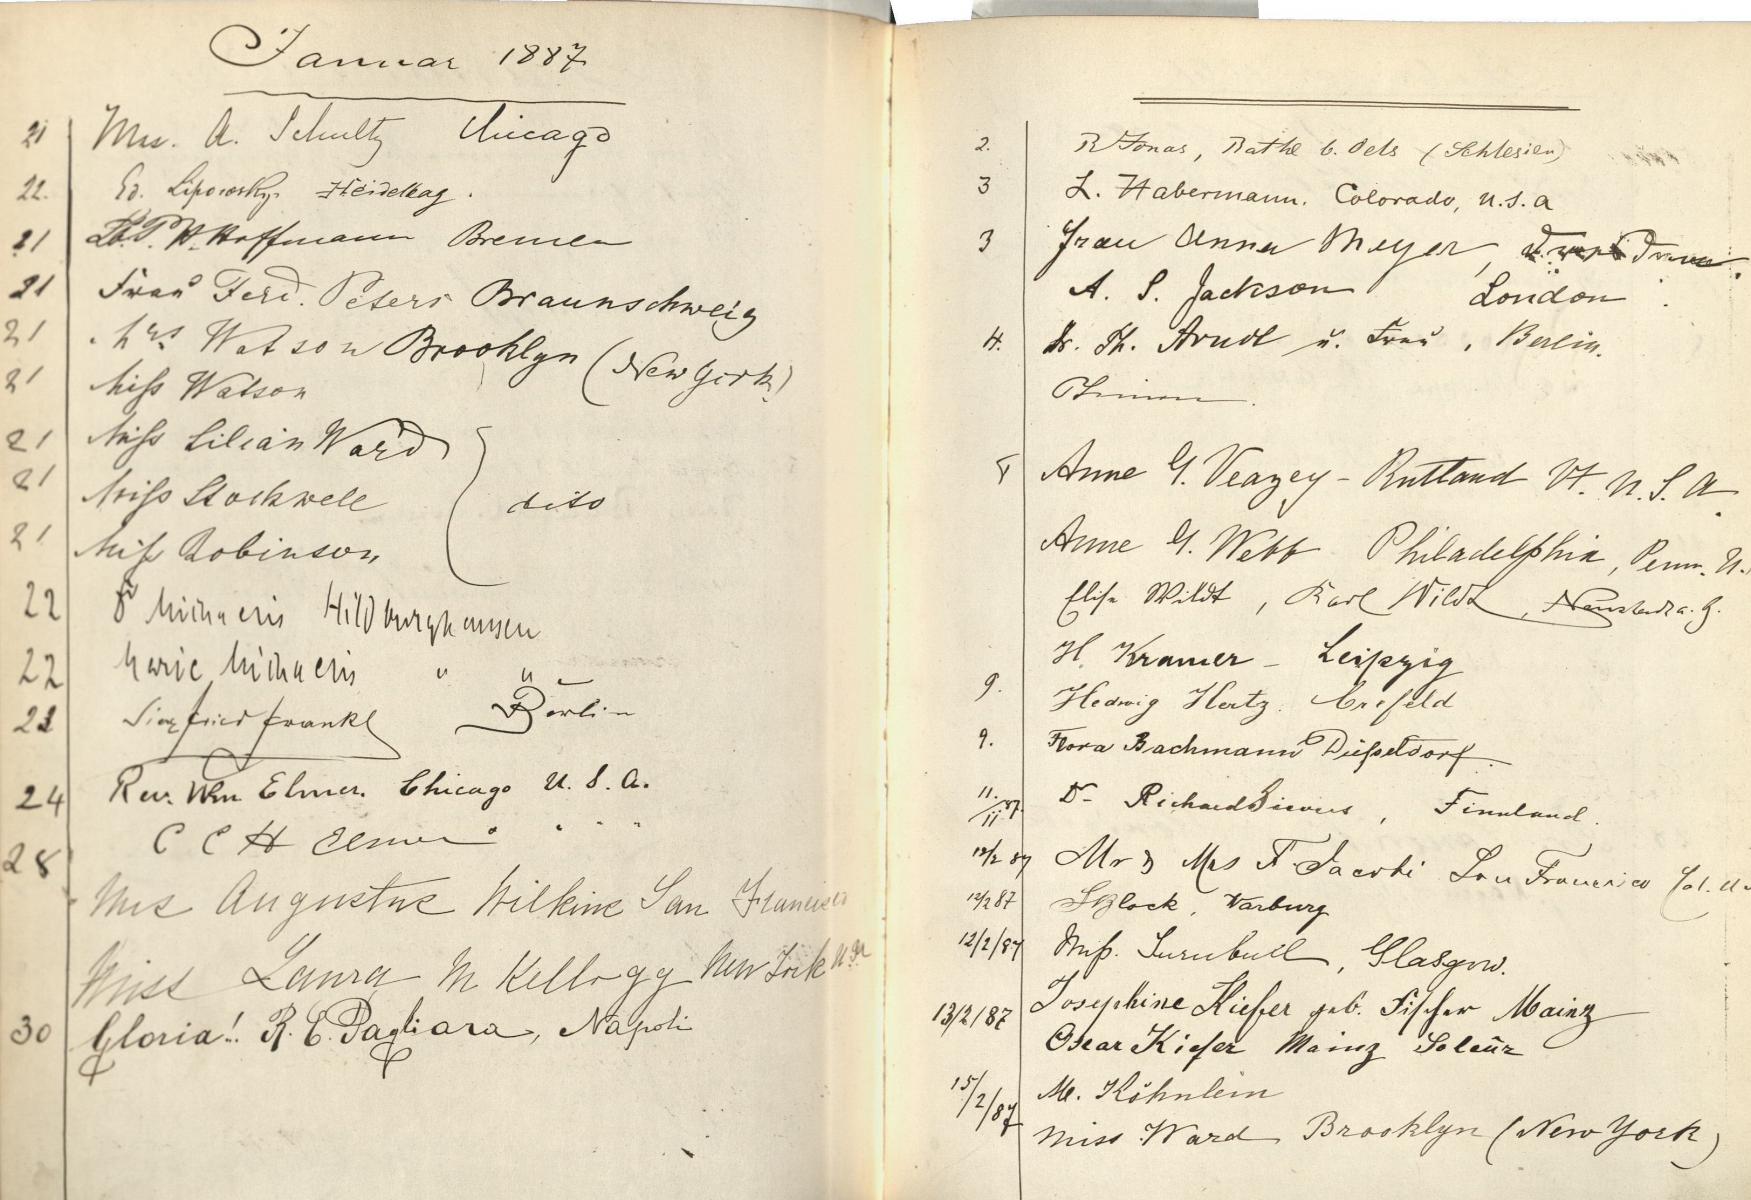 Januar 1887
21 Mrs. A. Schultz Chicago
22. Ed. Lipowsky. Heidelbag.
21 W. Hoffmann Bremen
21 Frau Ferd. Peters Braunschweig
21 Mrs Watson Brooklyn (New York)
21 Miss Watson
21 Miss Lilian Ward
21 Miss Stockwell dito
21 Miss Robinson
22 Michaelis Hildburghausen
22 Marie Michaelis " "
23 Siegfried Frankl Berlin
24 Rev. Wm Elmer. Chicago U. S. A.
C C H Elmer " " " "
28
Mrs Augustus Wilkins San Francisco
Miss Laura M Kellogg New York U.S.A
30 Gloria!. R. E. Pagliara, Napoli
2. R Jonas, Rathe b. Oels (Schlesien)
3 L. Habermann. Colorado, U.S.A
3 Frau Anna Meyer,
A. S. Jackson London
4. Dr. Th. Arndt u. Frau, Berlin.
5 Anne G. Veazey - Rutland Vt. U. S. A.
Anne G. Webb Philadelphia, Penn. U.
Elise Wildt, Karl Wildt, Neustadt a. H.
H. Kramer - Leipzig
9. Hedwig Hertz. Crefeld
9. Flora Bachmann Düsseldorf.
11./II 87. Dr Richard Sievers, Finnland.
12/2 87 Mr & Mrs F. Jacobi San Francisco Cal. U
12/2 87 S Block, Warburg
12/2/87 Miss. Turnbull, Glasgow.
13/2/87 Josephine Kiefer geb. Fischer Mainz
Oscar Kiefer Mainz
15/2/87 M. Köhnlein
Miss Ward Brooklyn (New York)